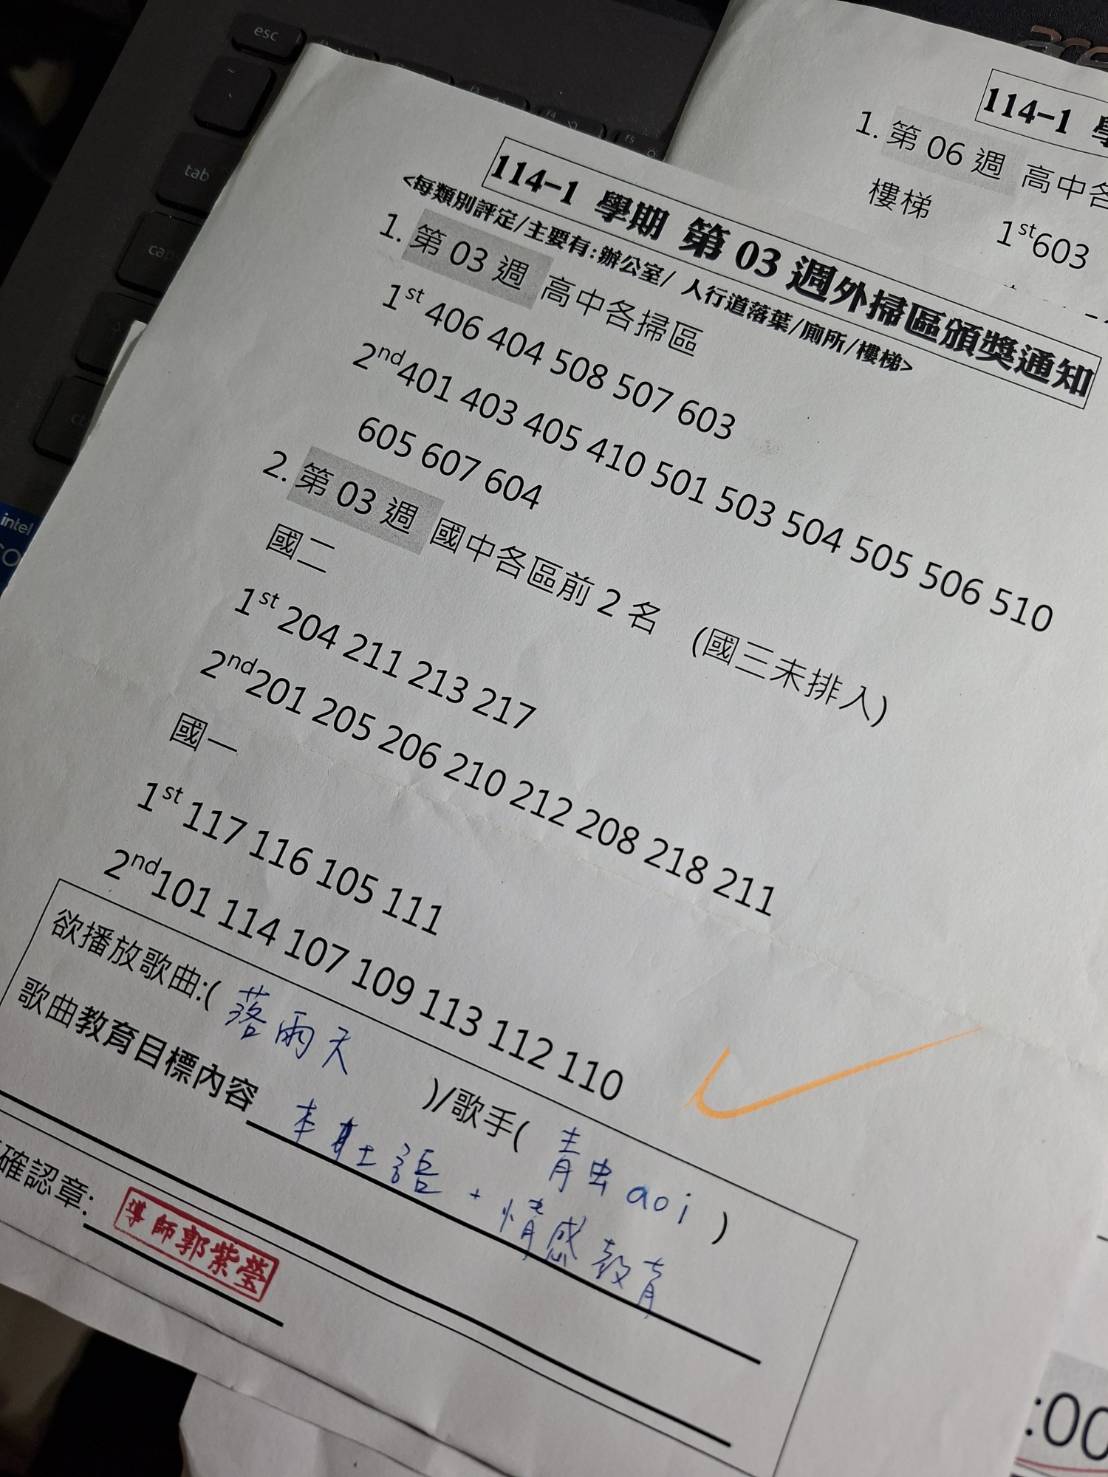 esc
tab
intel
114-1 學
1. 第 06 週 高中各
樓梯 1st603
114-1 學期 第 03 週外掃區頒獎通知
<每類別評定/主要有:辦公室/ 人行道落葉/廁所/樓梯>
1. 第 03 週 高中各掃區
1st 406 404 508 507 603
2nd401 403 405 410 501 503 504 505 506 510
605 607 604
2. 第 03 週 國中各區前 2 名 (國三未排入)
國二
1st 204 211 213 217
2nd201 205 206 210 212 208 218 211
國一
1st 117 116 105 111
2nd101 114 107 109 113 112 110
欲播放歌曲:( 落雨天 )/歌手( 青虫aoi )
歌曲教育目標內容 本土語 + 情感教育
確認章: 導師郭紫瑩
:00